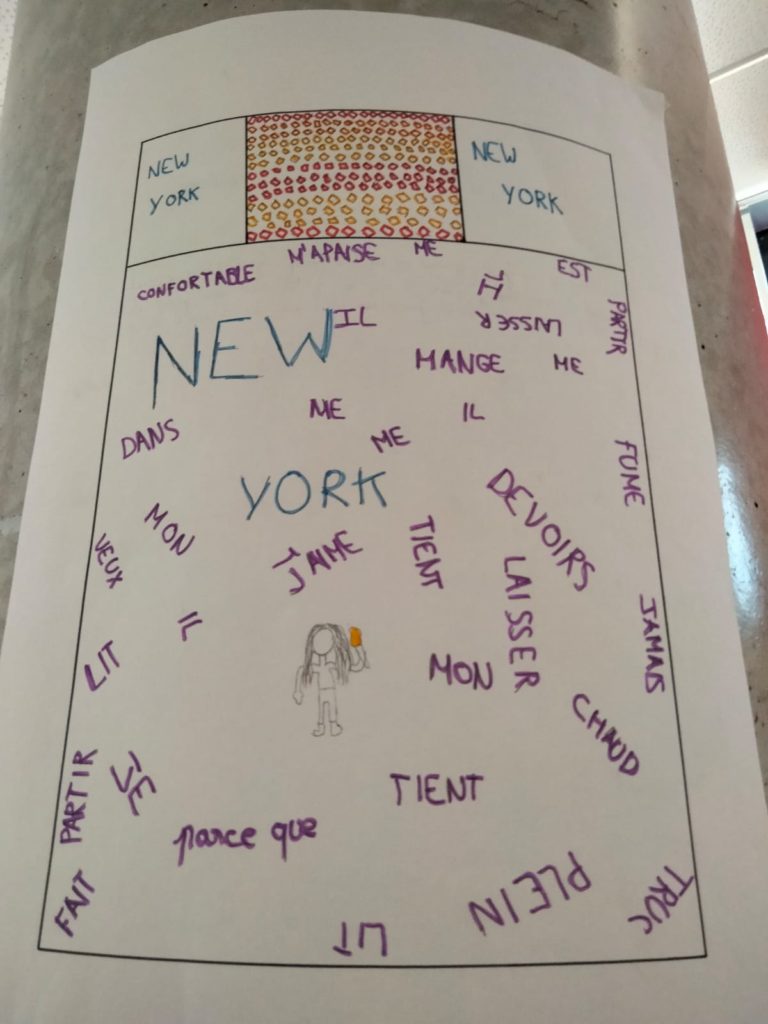 NEW
YORK
NEW
YORK
CONFORTABLE
M'APAISE
ME
EST
IL
PARTIR
LAISSER
IL
NEW
MANGE
ME
ME
IL
ME
DANS
FUME
YORK
DEVOIRS
MON
TIENT
VEUX
J'AIME
LAISSER
JAMAIS
IL
LIT
MON
CHAUD
PARTIR
JE
TIENT
parce que
PLEIN
TRUC
FAIT
LIT